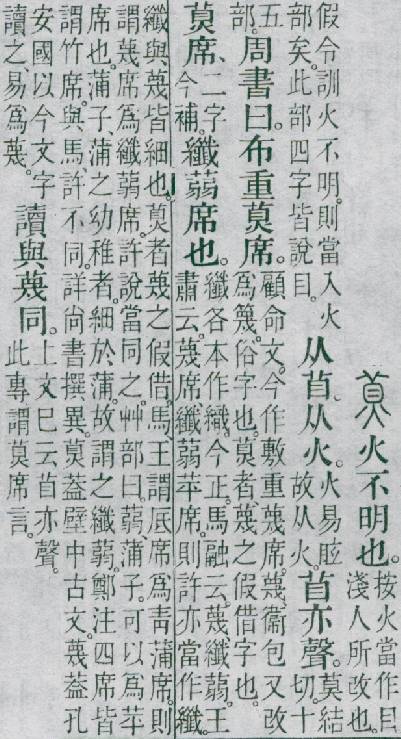 火不明也。按火當作目。
淺人所改也。
假令訓火不明。則當入火
部矣。此部四字皆說目。从苜。从火。火易眩。
故从火。苜亦聲。莫結
切。十
五
部。周書曰。布重席。顧命文。今作敷重蔑席。蔑、衞包又改
爲篾。俗字也。者、蔑之假借字也。
席、二字
今補。纖蒻席也。纖各本作織。今正。馬融云。蔑、纖蒻。王
肅云。蔑席、纖蒻苹席。則許亦當作纖。
纖與蔑皆細也。者蔑之假借。馬、王謂底席爲靑蒲席。則
謂蔑席爲纖蒻席。許說當同之。艸部曰。蒻、蒲子。可以爲苹
席也。蒲子、蒲之幼稚者。細於蒲。故謂之纖蒻。鄭注四席皆
謂竹席。與馬、許不同。詳尙書撰異。葢壁中古文。蔑葢孔
安國以今文字
讀之、易爲蔑。讀與蔑同。上文巳云苜亦聲。
此專謂席言。